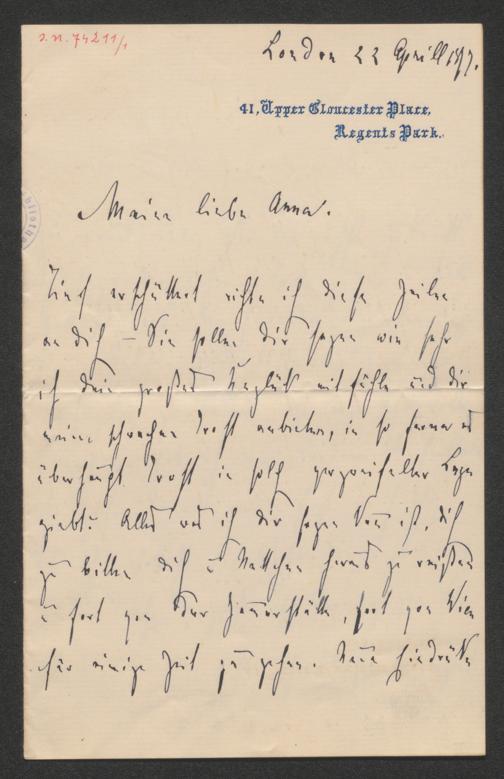 I. N. 74211/1
London 22 Aprill 1897.
41, Upper Gloucester Place,
Regents Park.
Meine liebe Anna.
Tief erschüttert richte ich diese Zeilen
an dich – Sie sollen dir sagen wie sehr
ich dein großes Unglük mit fühle und dir
meine schwachen Trost anbieten, in so ferne es
überhaupt Trost in solch verzweifelter Lage
giebt. Alles was ich dir sagen kann ist, dich
zu bitten dich u Nettchen heraus zu reißen
u fort von der Jammerstätte, fort von Wien
für einige Zeit zu gehen. Neue Eindrüke